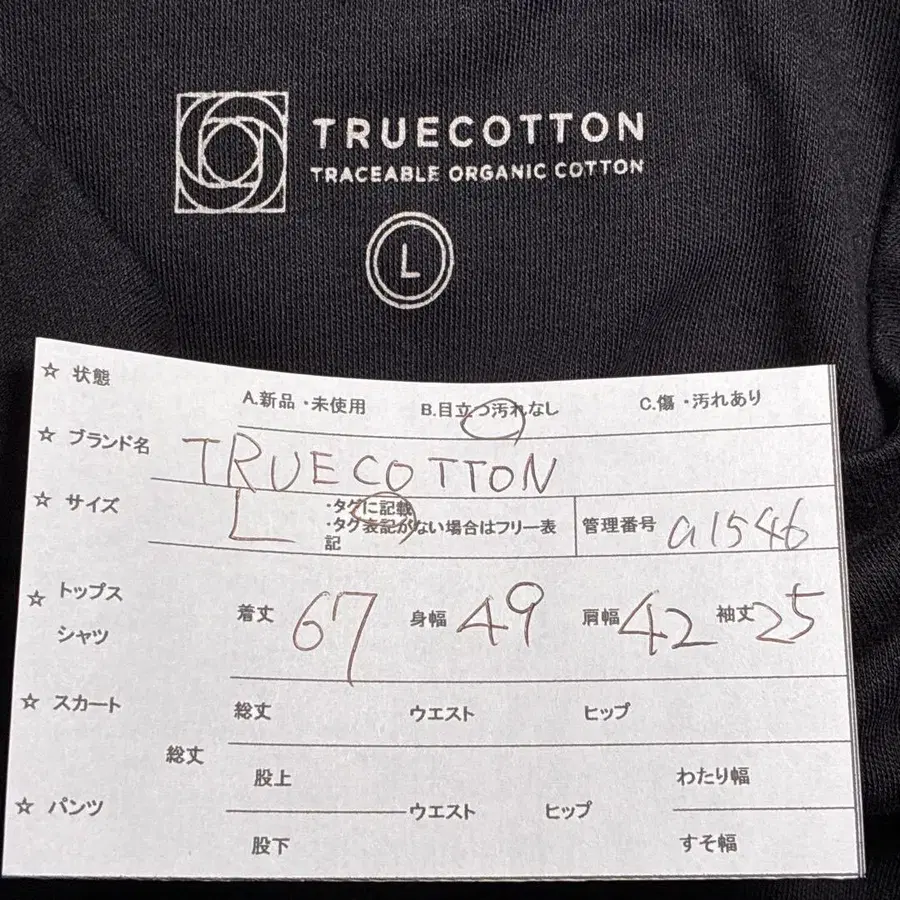 TRUECOTTON
TRACEABLE ORGANIC COTTON
L
☆ 状態 A.新品・未使用 B.目立つ汚れなし C.傷・汚れあり
☆ ブランド名 TRUECOTTON
☆ サイズ L ・タグに記載
・タグ表記がない場合はフリー表
記
管理番号 a1546
☆ トップス
シャツ
着丈 67 身幅 49 肩幅 42 袖丈 25
☆ スカート 総丈 ウエスト ヒップ
総丈
股上 わたり幅
☆ パンツ ウエスト ヒップ
股下 すそ幅